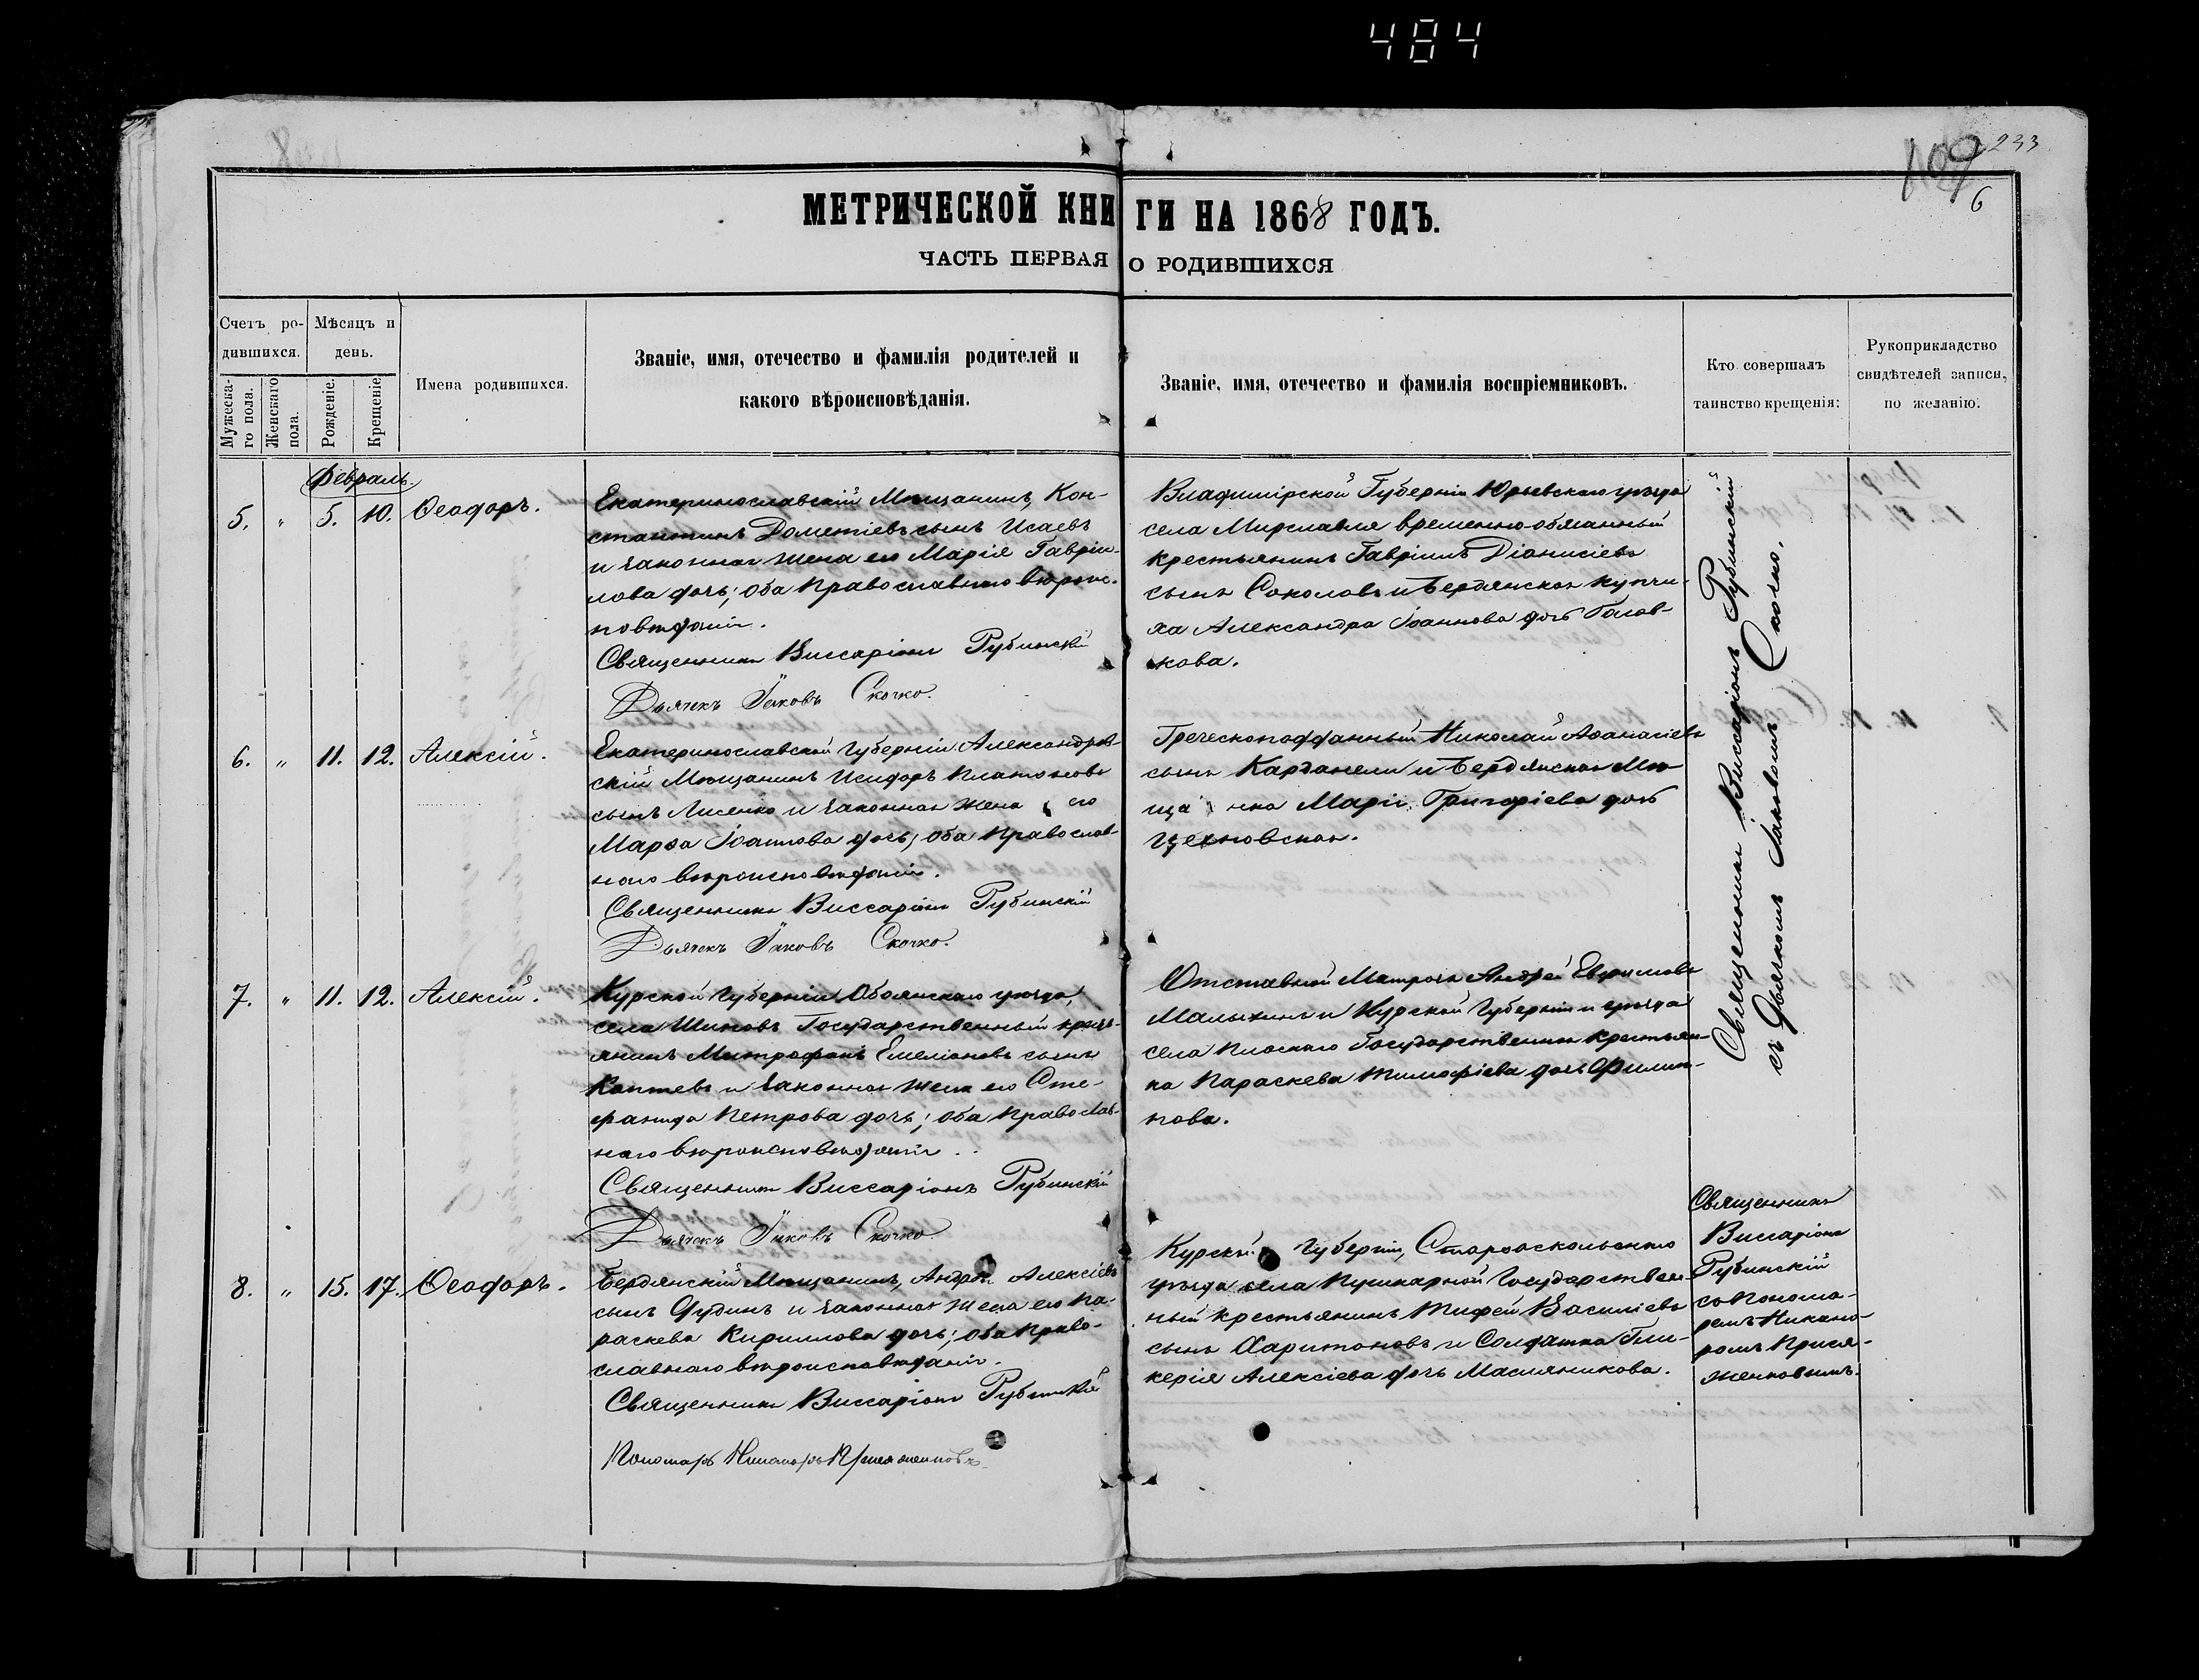 484
233
6
МЕТРИЧЕСКОЙ КНИГИ НА 1868 ГОДЪ.
ЧАСТЬ ПЕРВАЯ О РОДИВШИХСЯ
Счетъ ро-
дившихся.
Мѣсяцъ и
день.
Мужеска-
го пола.
Женскаго
пола.
Рожденіе.
Крещеніе
Имена родившихся.
Званіе, имя, отечество и фамилія родителей и
какого вѣроисповѣданія.
Званіе, имя, отечество и фамилія воспріемниковъ.
Кто совершалъ
таинство крещенія:
Рукоприкладство
свидѣтелей записи,
по желанію.
Февраль.
5. " 5. 10. Ѳеодоръ.
Екатеринославскій Мѣщанинъ, Кон-
стантинъ Дометіевъ сынъ Исаевъ
и законная жена его Марія Гавріи-
лова дочь; оба Православнаго вѣроис-
повѣданія.
Священникъ Виссаріонъ Рубинскій
Дьячекъ Іаковъ Скочко.
Владимірской Губерніи Юрьевскаго уѣзда
села Мирславля временно-обязанный
крестьянинъ Гавріилъ Діонисіевъ
сынъ Соколовъ и Бердянская купчи-
ха Александра Іоаннова дочь Голов-
кова.
Священникъ Виссаріонъ Рубинскій
съ Дьячкомъ Іаковомъ Скочко.
6. " 11. 12. Алексій.
Екатеринославской губерніи Александров-
скій Мѣщанинъ Исидоръ Платоновъ
сынъ Лисенко и законная жена его
Марѳа Іоаннова дочь; оба Православ-
наго вѣроисповѣданія.
Священникъ Виссаріонъ Рубинскій
Дьячекъ Іаковъ Скочко.
Греческоподданный Николай Аѳанасіевъ
сынъ Карванели и Бердянская Мѣ-
щанка Марія Григоріева дочь
Цехновская.
7. " 11. 12. Алексій.
Курской губерніи Обоянскаго уѣзда,
села Шиповъ Государственный кресть-
янинъ Митрофанъ Емеліановъ сынъ
Коптевъ и законная жена его Сте-
фанида Петрова дочь; оба Православ-
наго вѣроисповѣданія.
Священникъ Виссаріонъ Рубинскій
Дьячекъ Іаковъ Скочко
Отставной Матросъ Андрей Евфимовъ
Малыхинъ и Курской губерніи и уѣзда
села Плоскаго Государственная крестьян-
ка Параскева Тимофіева дочь Филип-
пова.
8. " 15. 17. Ѳеодоръ.
Бердянскій Мѣщанинъ, Андрей Алексіевъ
сынъ Дудинъ и законная жена его Па-
раскева Кириллова дочь; оба Право-
славнаго вѣроисповѣданія.
Священникъ Виссаріонъ Рубинскій
Пономарь Никаноръ Присяженковъ
Курской губерніи, Старооскольскаго
уѣзда села Пушкарной Государствен-
ный крестьянинъ Тифей Василіевъ
сынъ Харитоновъ и Солдатка Гли-
керія Алексіева дочь Масляникова.
Священникъ
Виссаріонъ
Рубинскій
съ Понома-
ремъ Никано-
ромъ Прися-
женковымъ.